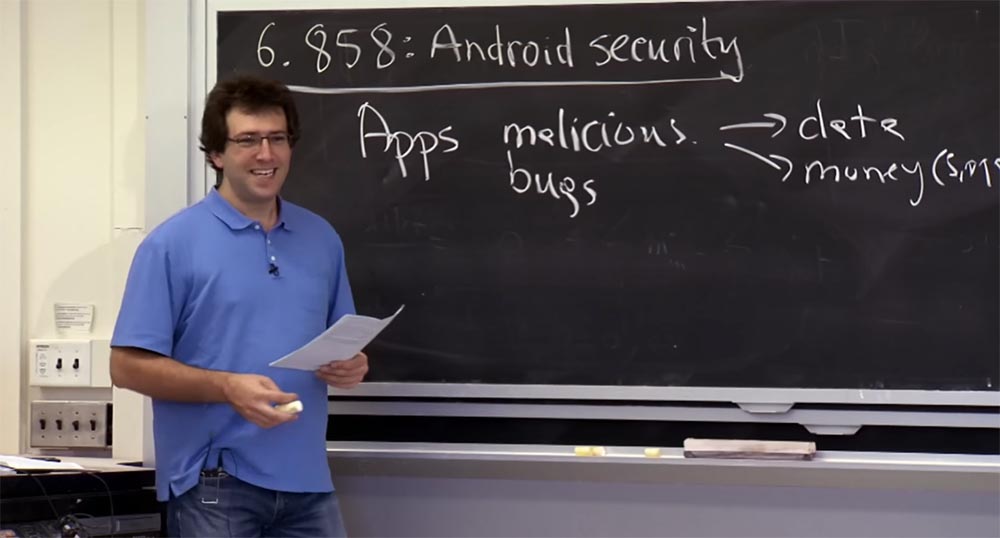 6.858: Android security
Apps malicious. → data
bugs → money (s,